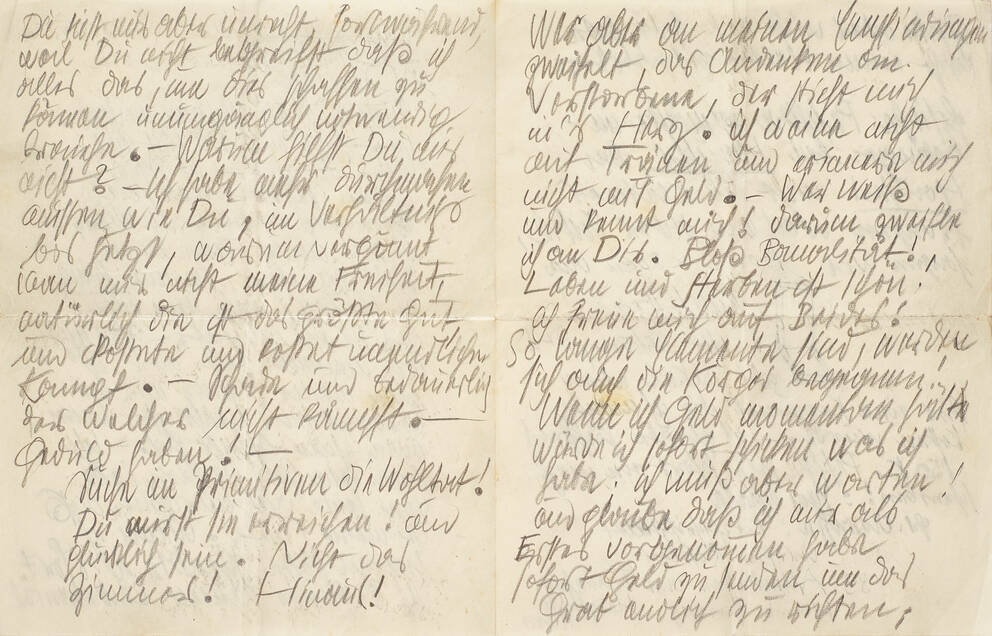 Du tust mir aber unrecht, fortwährend,
weil Du nicht begreifst daß ich
alles das, um dies schaffen zu
können unumgänglich notwendig
brauche. – Warum hilfst Du mir
nicht? – Ich habe mehr durchmachen
müssen wie Du, im Verhältnis
bis jetzt, warum vergönnt
man mir nicht meine Freiheit,
natürlich die ist das größte Gut
und kostete und kostet unendlichen
Kampf. – Schade und bedauerlich
der welcher nicht kämpft. –
Geduld haben! –
Suche im Primitiven die Wohltat!
Du wirst sie erreichen! und
glücklich sein. Nicht das
Zimmer! Hinaus!
Wer aber an meinen Empfindungen
zweifelt, das Andenken am
Verstorbene, der sticht mich
in's Herz! ich weine nicht
mit Tränen und erinnere mich
nicht mit Geld. – Wer weiß
und kennt mich! darum zweifle
ich an Dir. Bloß Banalität!,
Leben und Sterben ist schön!
ich freue mich auf Beides!
So lange Elemente sind, werden
sich auch die Körper begegnen!
Wenn ich Geld momentan hätte
würde ich sofort schicken was ich
habe. ich muß aber warten!
und glaube daß ich mir als
Erstes vorgenommen habe
sofort Geld zu senden um das
Grab endlich zu richten;